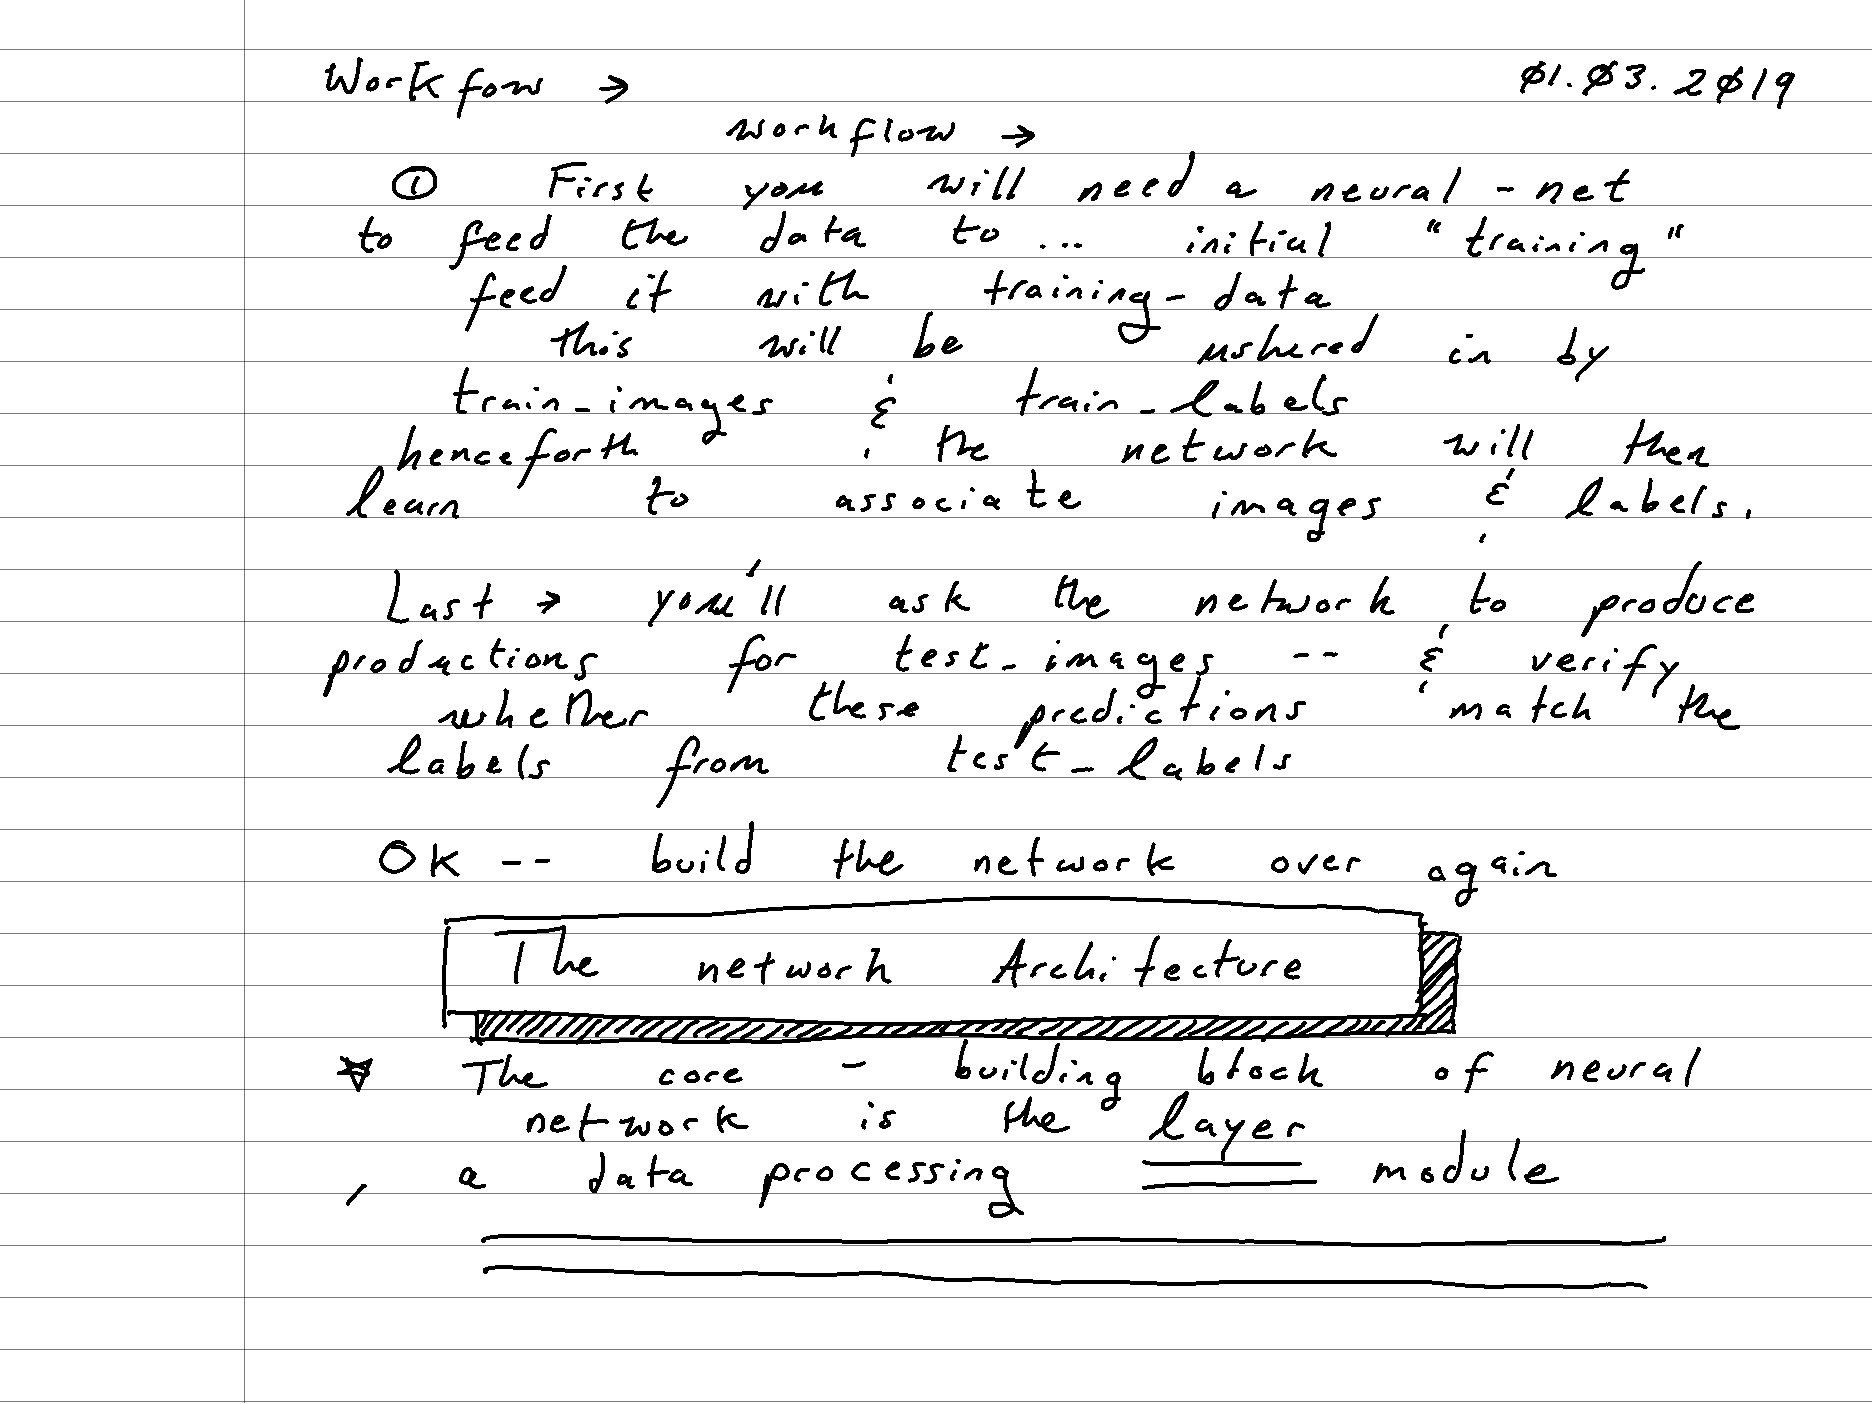 Workfow → 01.03.2019
workflow →
① First you will need a neural-net
to feed the data to... initial "training"
feed it with training-data
this will be ushered in by
train_images & train_labels
henceforth, the network will then
learn to associate images & labels.
Last → you'll ask the network to produce
productions for test_images -- & verify
whether these predictions match the
labels from test_labels
OK -- build the network over again
The network Architecture
☆ The core - building block of neural
network is the layer
, a data processing module